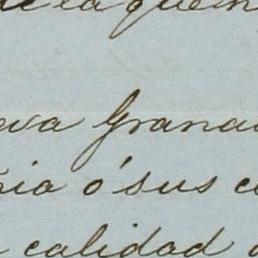 de la quem
eva Grana
ia ó sus c
calidad